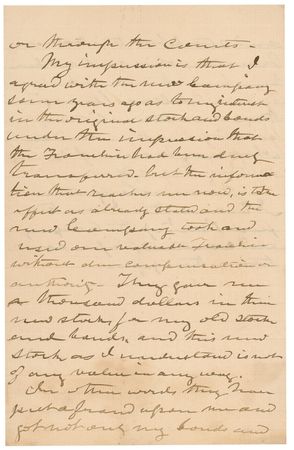 or through the Courts -
My impression is that I
agreed with the new Company
some years ago as to my interest
in the original stock and bonds
under the impression that
the Franchise had been duly
transferred. but the informa
tion that reaches me now, is to the
effect as already stated and the
new Company took and
used our valuable Franchise
without due compensation or
authority - They gave me
a thousand dollars in their
new stocks for my old stock
and bonds, and this new
stock as I understand is not
of any value in any way.
In other words they have
put a fraud upon me and
got not only my bonds and